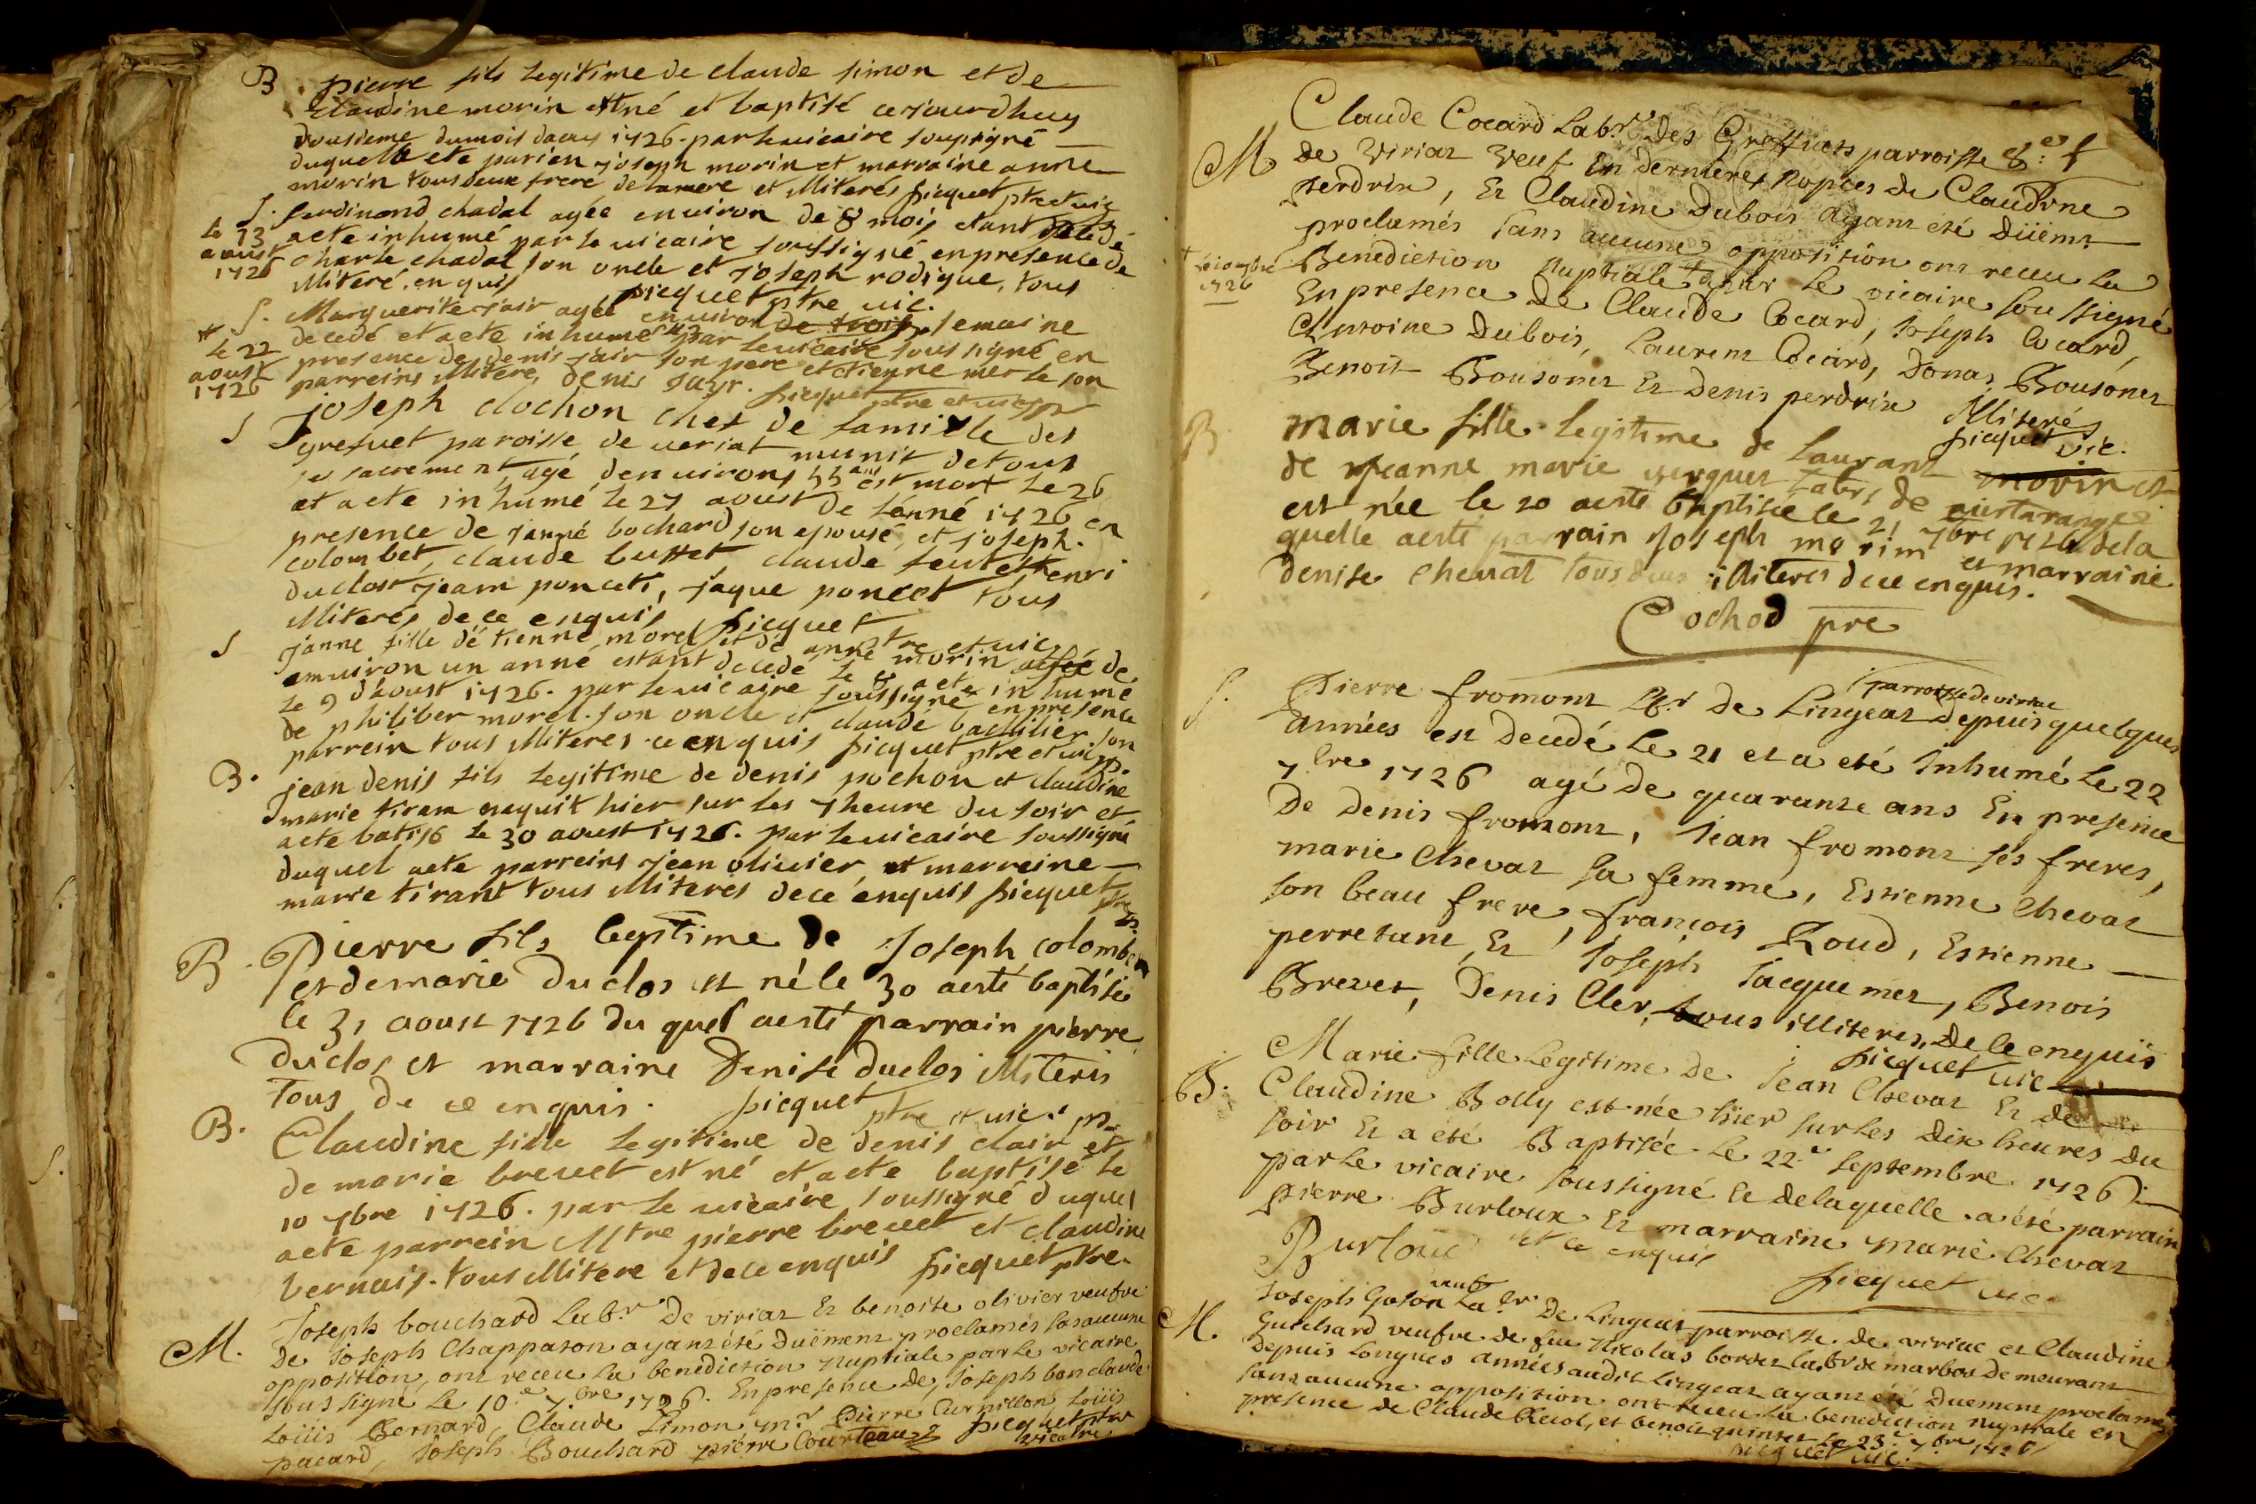 B. pierre fils legitime de claude simon et de
claudine morin est né et baptisé cejourdhuy
dousieme dumois daous 1726. par le vicaire soupsigné
duquel a ete parien joseph morin et marraine anne
morin tous deux frere de lamere et illiteres picquet ptre et vic
S. ferdinand chadal agée enuiron de 8 mois etant decedé
le 13 aoust 1726
aete inhumé par le uicaire soussigné en presence de
charle chadal son oncle et joseph rodigue, tous
illiteré. en quis picquet ptre vic.
S. Marguerite jair agée enuiron de trois semaine
* le 22 aoust 1726
decedé et aete inhumé par le uicaire sous signé en
presence de denis jair son pere et etienne merle son
parreins illitere, denis jayr. picquet ptre et vic
S joseph clochon chef de famille des
grefuet paroisse de ueriat munit de tous
ses sacrement agé denuirons 55 ans est mort le 26
et aete inhumé le 27 aoust de lanné 1726 en
presence de janne bochard son epouse, et joseph
colombet, claude buffet claude feutet henri
duclost jeam poncet, jaque poncet tous
illiterés de ce enquis picquet ptre et uic
S janne fille détienne morel et de anne morin agée de
enuiron un anné estant decedé le 8 aete inhumé
le 9 daoust 1726. par le uicaire soussigné en presence
de philiber morel. son oncle et claude bachilier son
parrein tous illiteres ce en quis picquet ptre et vic
B. jean denis fils legitime de denis pochon et claudine
marie tiran naquit hier sur les 7 heure du soir et
aete batisé le 30 aoust 1726. par le uicaire soussigné
duquel aete parreins jean oliuier et marreine
marie tirant tous illiteres dece enquis picquet ptre
B. Pierre fils legitime de Joseph colombet
et de marie Duclos est né le 30 aesté baptisé
le 31 aoust 1726 du quel aesté parrain pierre
duclos et marraine Denise duclos illiteris
tous de ce enquis. picquet ptre et uic.
B. Claudine fille legitime de denis clair et
de marie breuet est né et aete baptisé le
10 7bre 1726. par le uicaire soussigné duquel
aete parrein Mtre pierre breuet et claudine
bernais. tous illitere et de ce enquis picquet ptre.
M. Joseph bouchard Labr. De viriat Et benoite olivier veufve
De joseph Chappaton ayant été Duëment proclamés sans aucune
opposition, ont receu la benediction nuptiale par le vicaire
sous signé Le 10e 7bre 1726. En presence De, Joseph bon claude
Loüis Bernard, Claude Limon Pierre Curnillon Loüis
pacard, Joseph Bouchard pierre Courteaux picquet ptre vicaire
Claude Cocard Labr. Des Greffuets parroisse
M de Viriat Veuf En dernieres nopces de Claudine
perdrix, Et Claudine Dubois ayant été Düëmt
proclamés sans aucune opposition ont receu La
Benediction Nuptiale + par Le vicaire soussigné
1726
En presence De Claude Cocard, Joseph Cocard,
Antoine Dubois, Laurent Cocard, Donas Bousonet
Benoit Bousonet Et Denis perdrix Illiterés
picquet vic.
B. marie fille legitime de laurant morin et
de jeanne marie
est née le 20 aesté baptisée le 21 7bre 1726 dela
quelle aesté parrain joseph morim et marraine
denise chevat tous deux illiteres dece enquis.
Cochod pre
S. Pierre fromont de Lingeat parroisse de viriac Depuis quelques
années est Decedé le 21 et a eté Inhumé Le 22
7bre 1726 agé de quarante ans En presence
De Denis fromont, Jean fromont ses freres,
marie Chevat sa femme, Estienne Chevat
son beau frere, françois Roud, Estienne
perretant, Et Joseph Jacquemet, Benois
Brevet, Denis Cler, tous illiteres, De Ce enquis
picquet uic
B. Marie fille Legitime De Jean Chevat Et de
Claudine Bolly est née hier sur Les Dix heures Du
soir Et a été Baptisée Le 22e Septembre 1726
par Le vicaire soussigné Et delaquelle a été parrain
pierre Burloux Et marraine marie Chevat
Burloux et ce enquis picquet uic
M. Joseph Goton veuf Labr De Lingeat parroisse de viriac et Claudine
Guichard veufve de feu Nicolas bordet labr de marbos De meurant
Depuis Longues années audit Lingeat ayant été Duement proclamés
sans aucune opposition ont receu La benediction nuptiale en
presence de Claude Recol, et benoit quinset le 23e 7bre 1726
picquet uic.